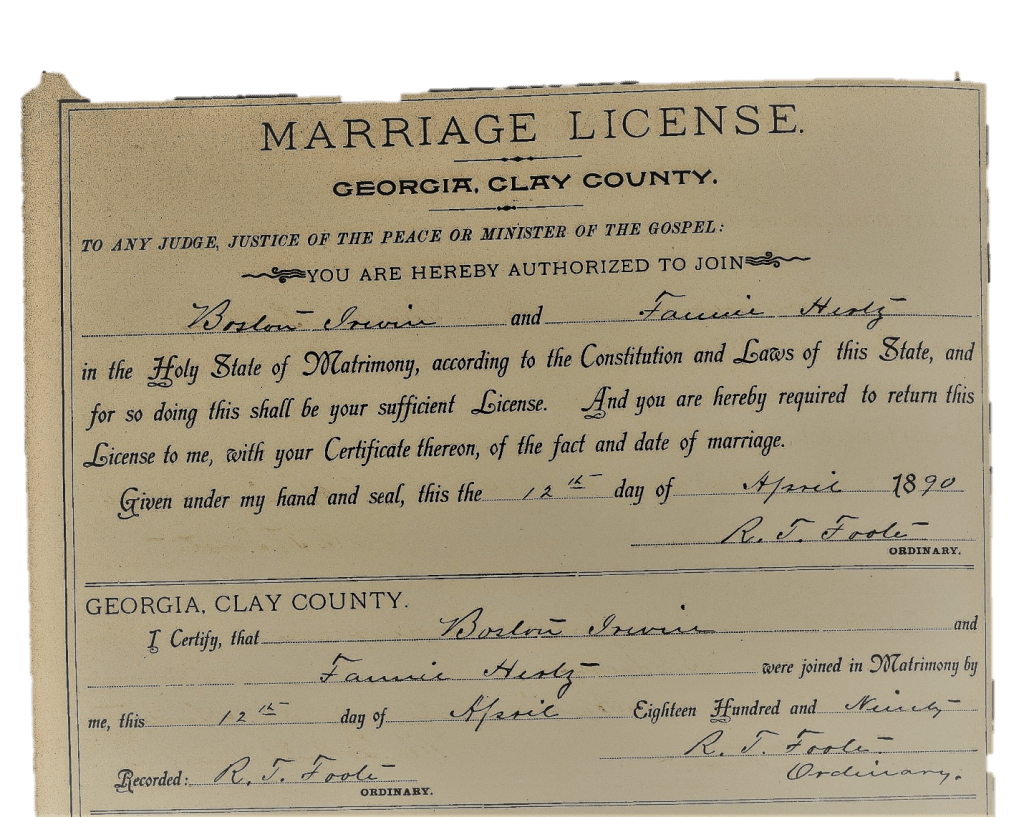 MARRIAGE LICENSE.
GEORGIA, CLAY COUNTY.
TO ANY JUDGE, JUSTICE OF THE PEACE OR MINISTER OF THE GOSPEL:
YOU ARE HEREBY AUTHORIZED TO JOIN
Boston Irwin and Fannie Hertz
in the Holy State of Matrimony, according to the Constitution and Laws of this State, and
for so doing this shall be your sufficient License. And you are hereby required to return this
License to me, with your Certificate thereon, of the fact and date of marriage.
Given under my hand and seal, this the 12th day of April 1890
R. T. Foote
ORDINARY.
GEORGIA, CLAY COUNTY.
I Certify, that Boston Irwin and
Fannie Hertz were joined in Matrimony by
me, this 12th day of April Eighteen Hundred and Ninety
R. T. Foote
Ordinary.
Recorded: R. T. Foote
ORDINARY.